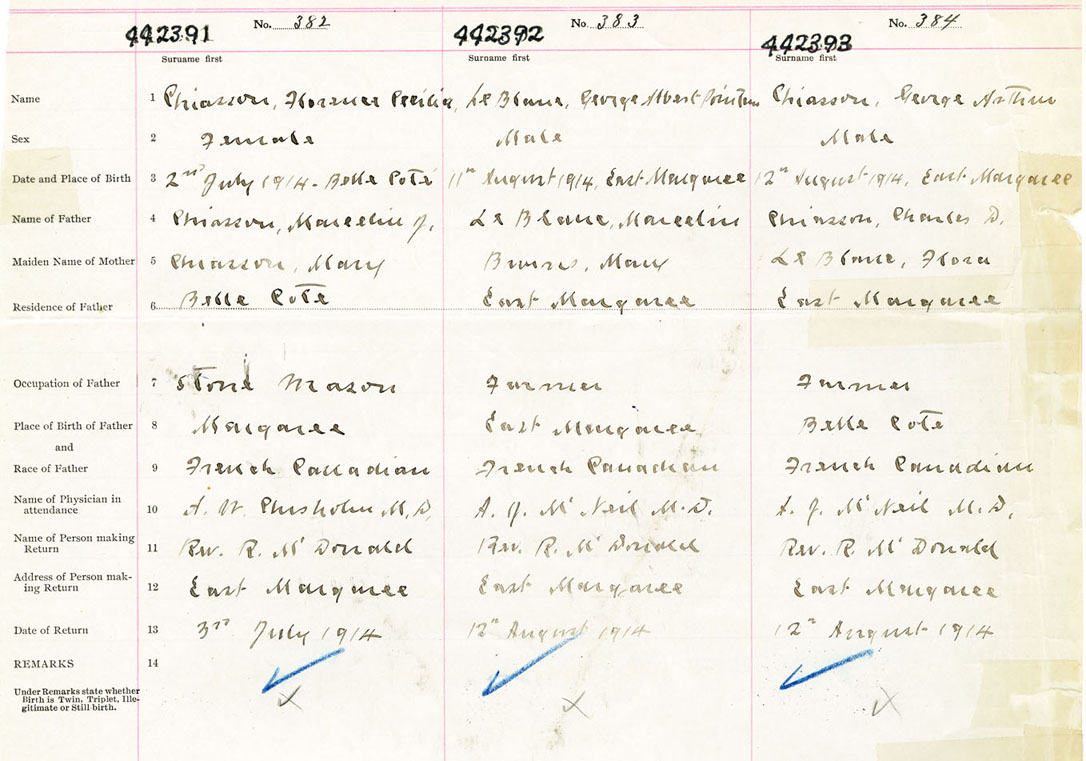 No. 382 No. 383 No. 384
442391 442392 442393
Surname first Surname first Surname first
Name 1 Chiasson, Florence Cecilia, Le Blanc, George Albert Chiasson, George Arthur
Sex 2 Female Male Male
Date and Place of Birth 3 2nd July 1914 - Belle Coté 11th August 1914, East Margaree 12th August 1914, East Margaree
Name of Father 4 Chiasson, Marcelin J. Le Blanc, Marcelin Chiasson, Charles D.
Maiden Name of Mother 5 Chiasson, Mary Mary Le Blanc, Flora
Residence of Father 6 Belle Coté East Margaree East Margaree
Occupation of Father 7 Stone Mason Farmer Farmer
Place of Birth of Father 8 Margaree East Margaree Belle Coté
and
Race of Father 9 French Canadian French Canadian French Canadian
Name of Physician in
attendance 10 A. W. Chisholm M.D. A. J. McNeil M.D. A. J. McNeil M.D.
Name of Person making
Return 11 Rev. R. McDonald Rev. R. McDonald Rev. R. McDonald
Address of Person mak-
ing Return 12 East Margaree East Margaree East Margaree
Date of Return 13 3rd July 1914 12th August 1914 12th August 1914
REMARKS 14
Under Remarks state whether
Birth is Twin, Triplet, Ille-
gitimate or Still-birth.